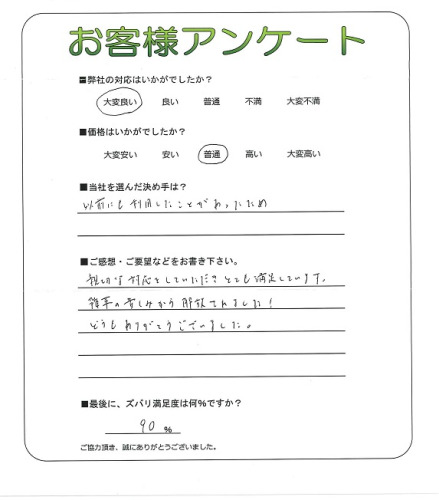 お客様アンケート
■弊社の対応はいかがでしたか？
大変良い 良い 普通 不満 大変不満
■価格はいかがでしたか？
大変安い 安い 普通 高い 大変高い
■当社を選んだ決め手は？
以前にも利用したことがあったため
■ご感想・ご要望などをお書き下さい。
親切な対応をしていただきとても満足しています。
雑草の苦しみから解放されました！
どうもありがとうございました。
■最後に、ズバリ満足度は何%ですか？
90 %
ご協力頂き、誠にありがとうございました。